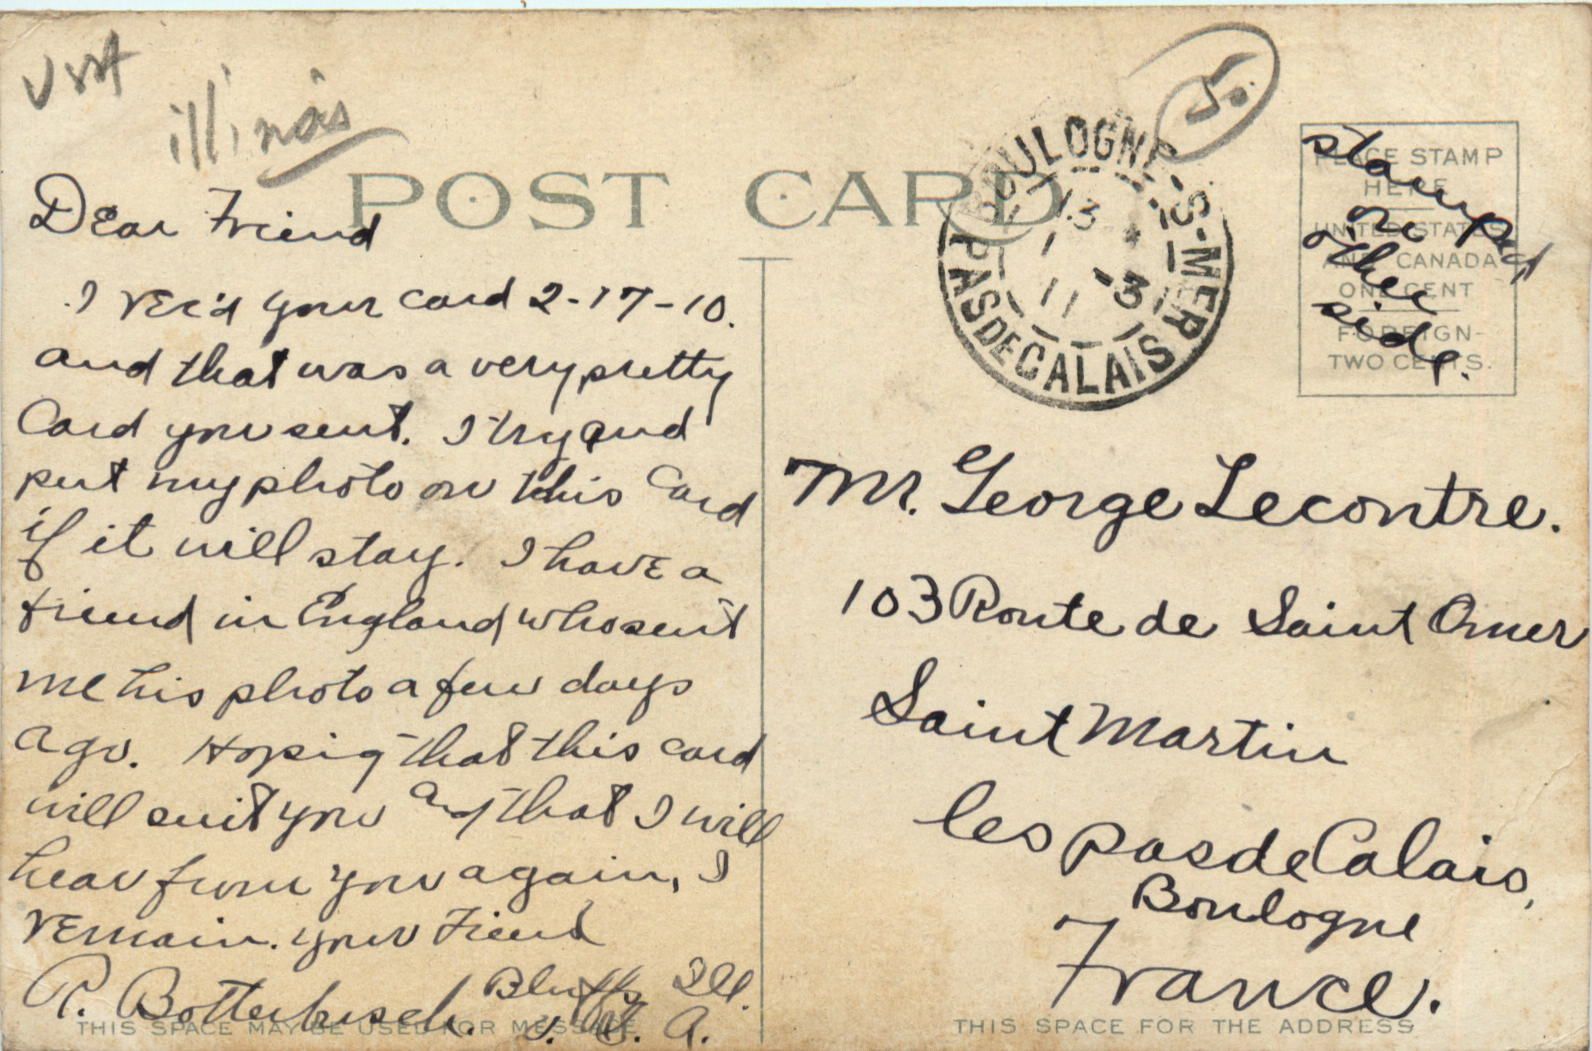 USA
Illinois
5.
POST CARD
BOULOGNE-S-MER
PAS DE CALAIS
13
1 -3
11
PLACE STAMP
HERE
UNITED STATES
AND CANADA
ONE CENT
FOREIGN-
TWO CENTS.
stamped
on
other
side.
Dear Friend
I rec'd your card 2-17-10.
and that was a very pretty
Card you sent. I try and
put my photo on this Card
if it will stay. I have a
friend in England who sent
me his photo a few days
ago. Hopig that this card
will suit you and that I will
hear from you again, I
remain. your Friend
R. Botterbusch. Bluffs Ill.
U.S.A.
THIS SPACE MAY BE USED FOR MESSAGE
Mr. George Lecontre.
103 Route de Saint Omer
Saint Martin
les pas de Calais,
Boulogne
France.
THIS SPACE FOR THE ADDRESS